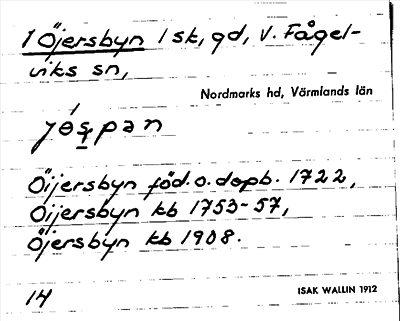 1 Öjersbyn 1 sk, gd, V. Fågel-
viks sn,
Nordmarks hd, Värmlands län
Öijersbyn föd. o. dopb. 1722,
Öijersbyn kb 1753-57,
Öjersbyn kb 1908.
14
ISAK WALLIN 1912